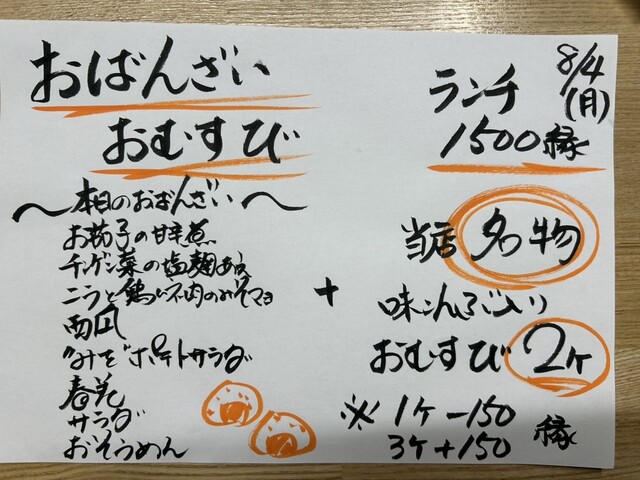 おばんざい
おむすび
ランチ
1500縁
8/4
(月)
〜本日のおばんざい〜
お茄子の甘辛煮
チンゲン菜の塩麹あえ
ニラと鶏ひき肉のみそマヨ
西風
"みそ"ポテトサラダ
春巻
サラダ
おそうめん
+
当店名物
味こんぶ入り
おむすび2ヶ
※1ヶ-150
3ヶ+150
縁